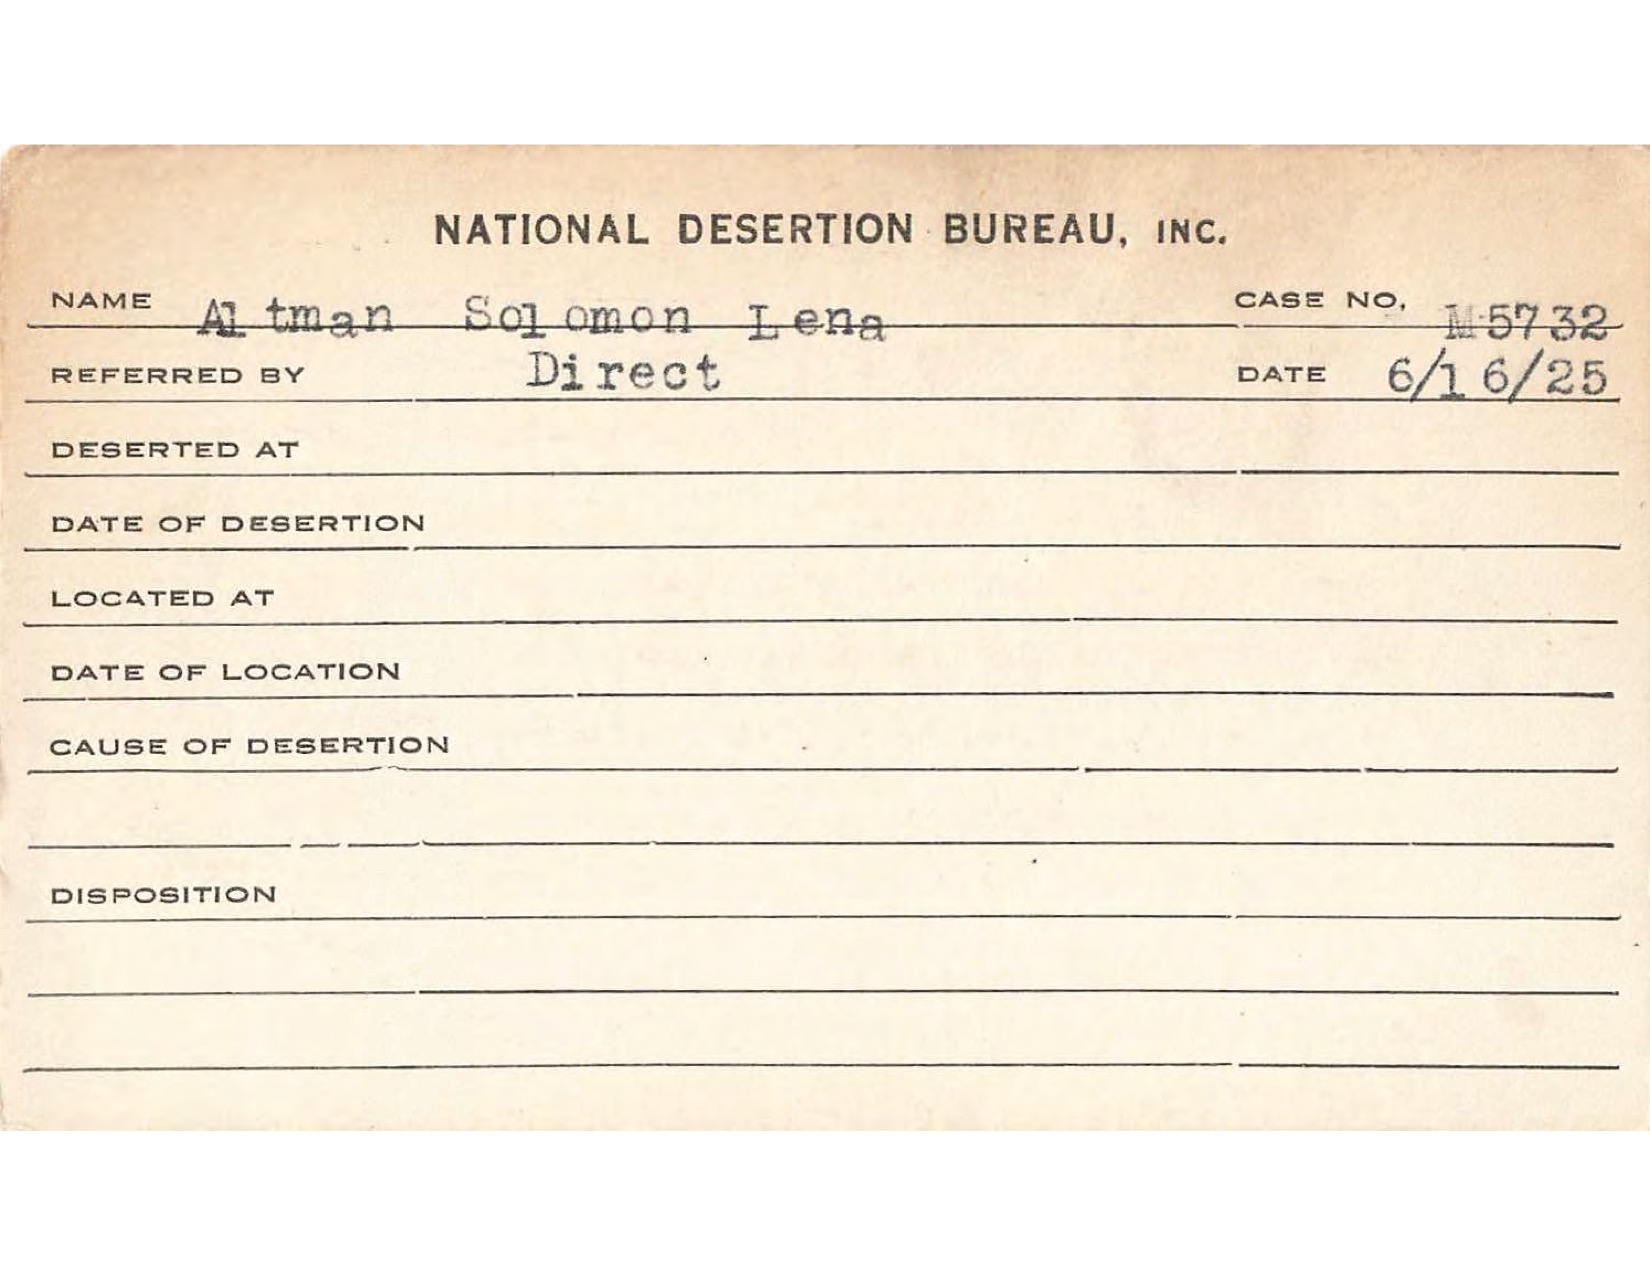 NATIONAL DESERTION BUREAU, INC.
NAME Altman Solomon Lena CASE NO. M5732
REFERRED BY Direct DATE 6/16/25
DESERTED AT
DATE OF DESERTION
LOCATED AT
DATE OF LOCATION
CAUSE OF DESERTION
DISPOSITION